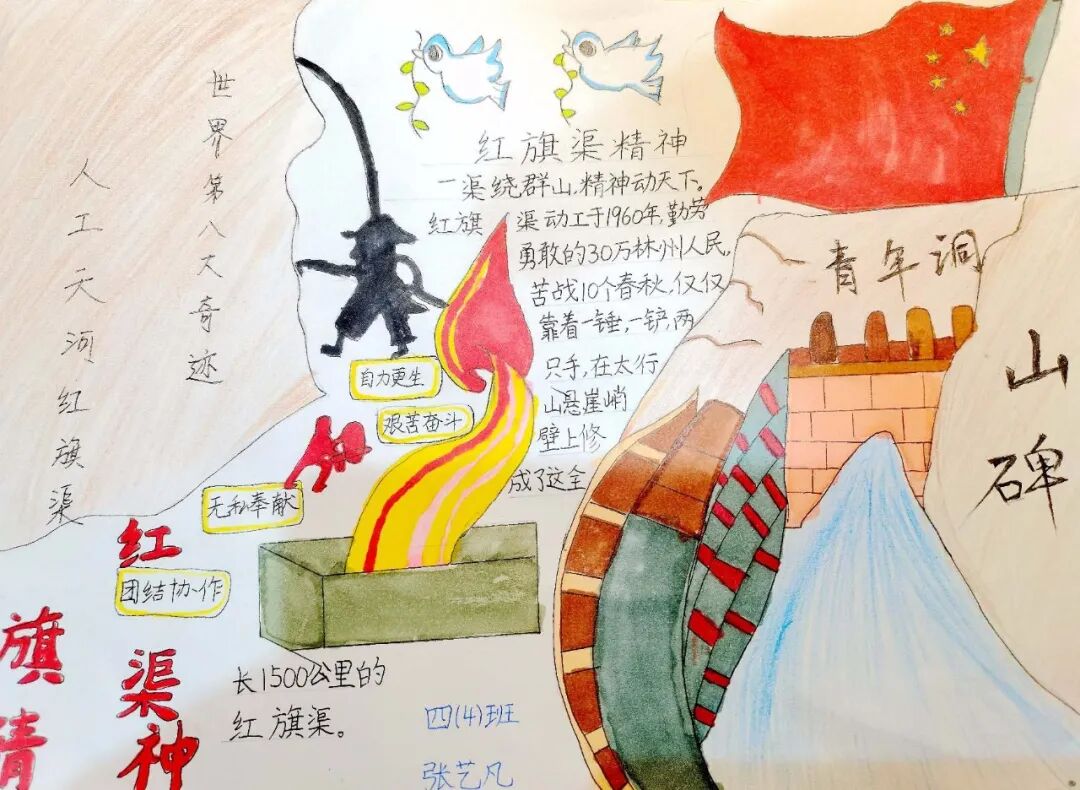 世界第八大奇迹
人工天河红旗渠
红旗渠精神
一渠绕群山,精神动天下。
红旗渠动工于1960年,勤劳
勇敢的30万林州人民,
苦战10个春秋,仅仅
靠着一锤,一铲,两
只手,在太行
山悬崖峭
壁上修
成了这全
长1500公里的
红旗渠。
自力更生
艰苦奋斗
无私奉献
团结协作
红
旗渠
精神
青年洞
山碑
四(4)班
张艺凡